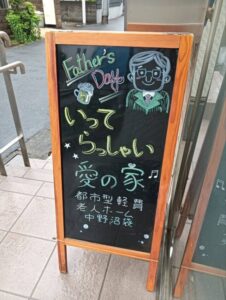 Father's
Day
いって
らっしゃい
愛の家
都市型軽費
老人ホーム
中野沼袋